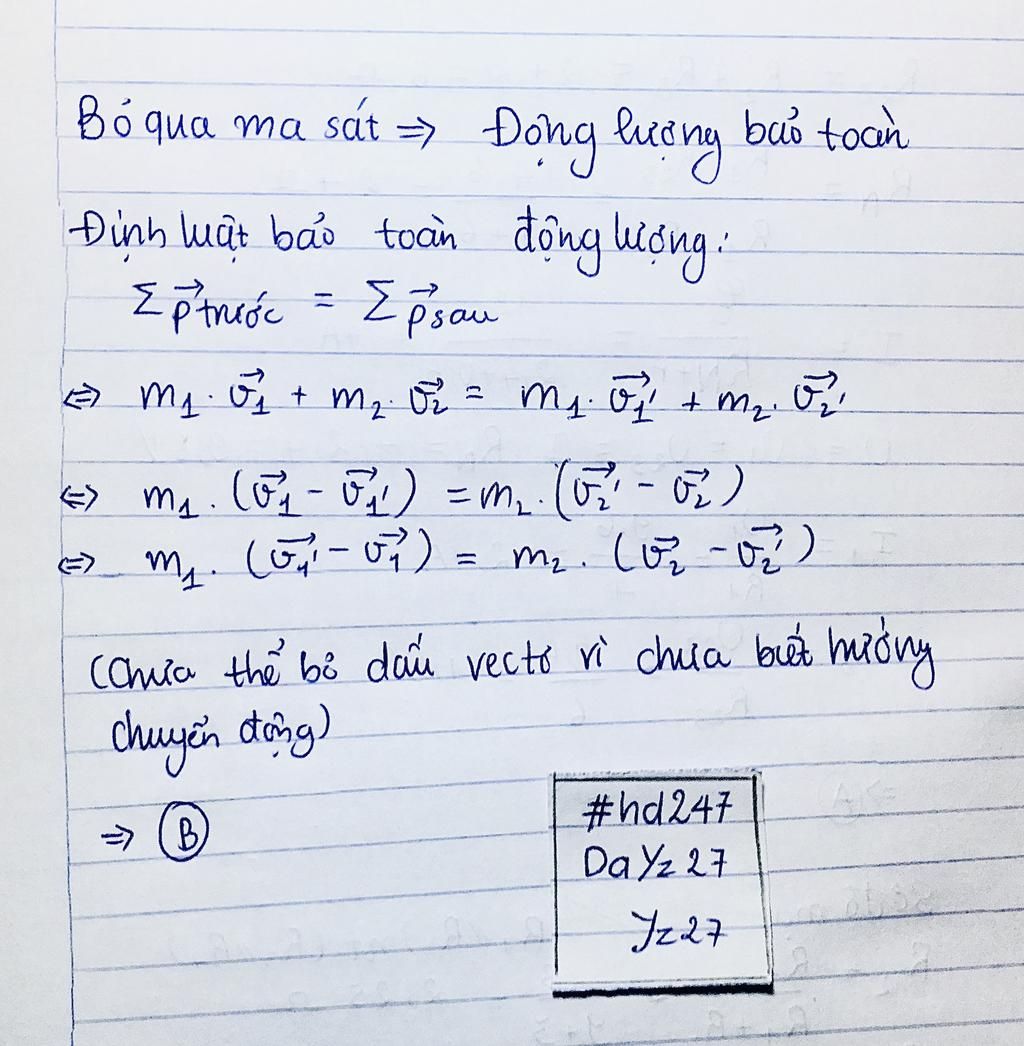 Bỏ qua ma sát => Động lượng bảo toàn
Định luật bảo toàn động lượng:
Σ p⃗ trước = Σ p⃗ sau
<=> m₁. v⃗₁ + m₂. v⃗₂ = m₁. v⃗₁' + m₂. v⃗₂'
<=> m₁. (v⃗₁ - v⃗₁') = m₂. (v⃗₂' - v⃗₂)
<=> m₁. (v⃗₁' - v⃗₁) = m₂. (v⃗₂ - v⃗₂')
(Chưa thể bỏ dấu vectơ vì chưa biết hướng
chuyển động)
=> B
#hd247
DaYz27
Yz27